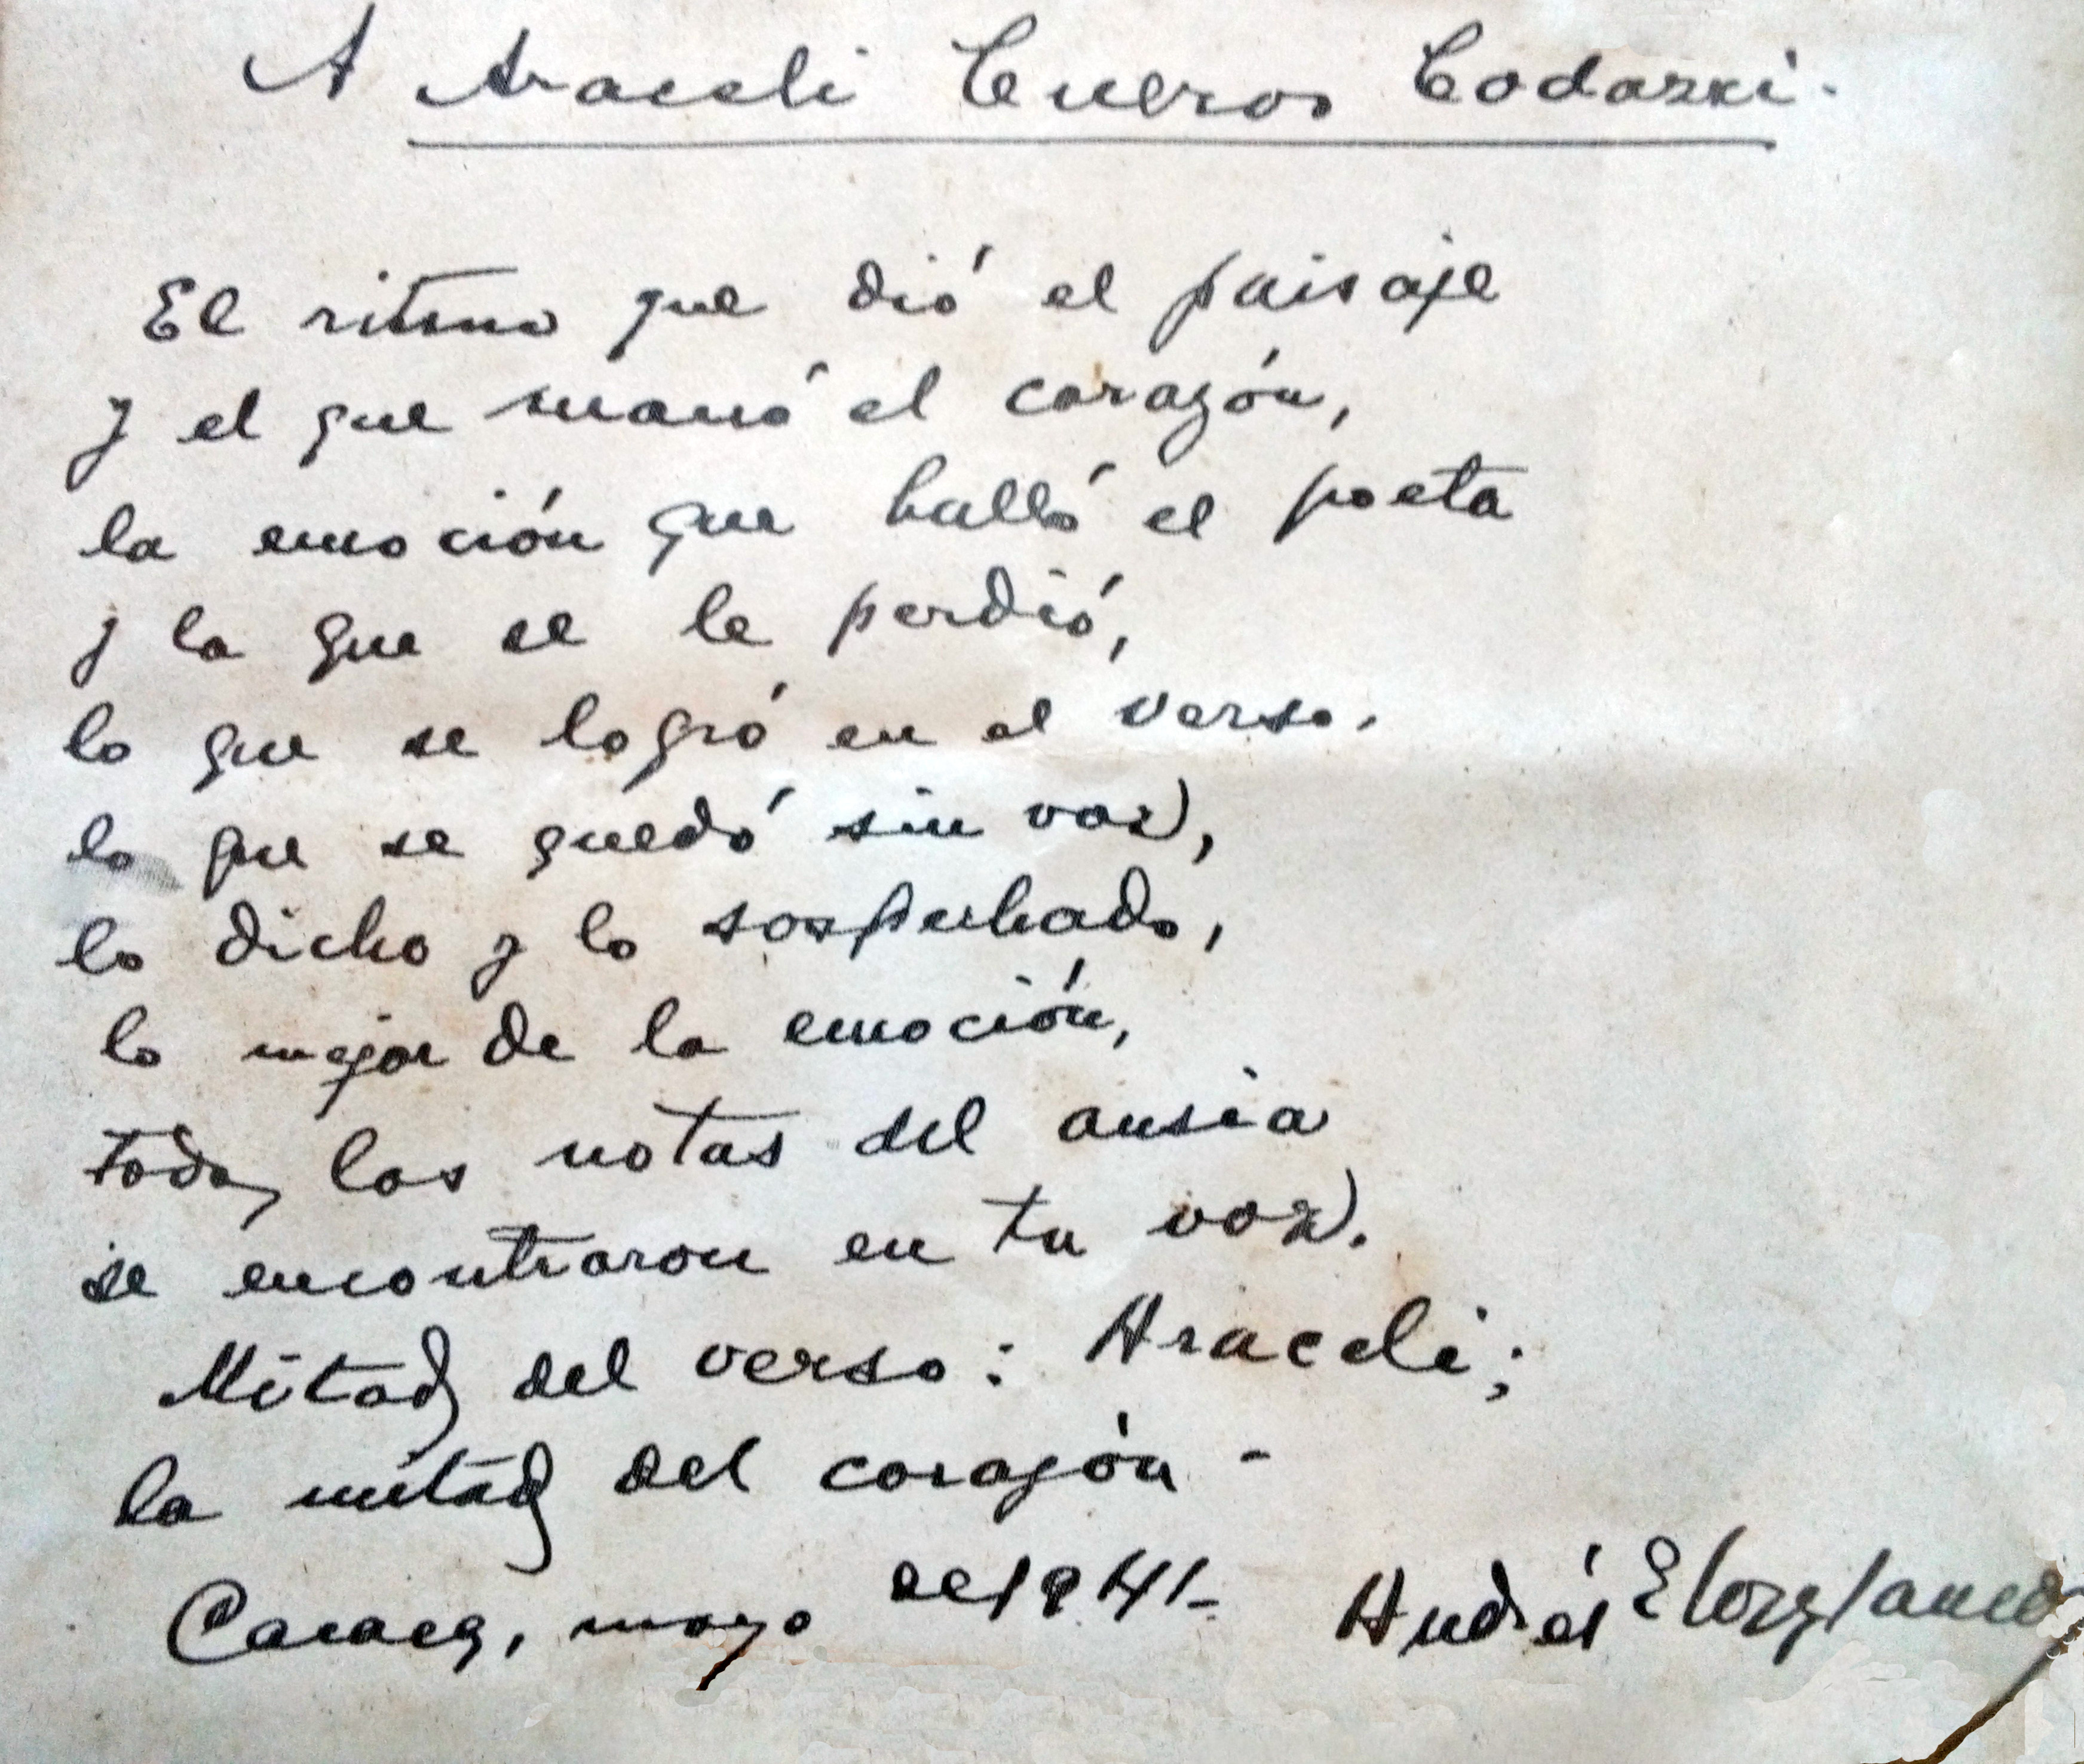 A Araceli Cueros Codazzi.
El ritmo que dió el paisaje
y el que manó el corazón,
la emoción que halló el poeta
y la que se le perdió,
lo que se logró en el verso.
lo que se quedó sin voz,
lo dicho y lo sospechado,
lo mejor de la emoción,
todas las notas del ansia
se encontraron en tu voz.
Mitad del verso: Araceli;
la mitad del corazón -
Caracas, mayo de 1941- Andrés Eloy Blanco